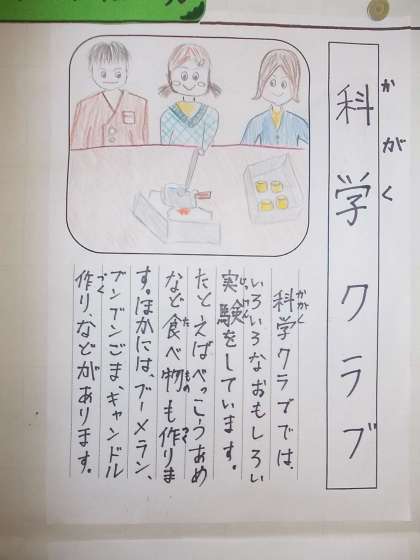 科学クラブ
かがく
科学クラブでは、
かがく
いろいろなおもしろい
実験をしています。
じっけん
たとえばべっこうあめ
など食べ物も作りま
た もの つく
す。ほかには、ブーメラン、
ブンブンごま、キャンドル
作り、などがあります。
づく